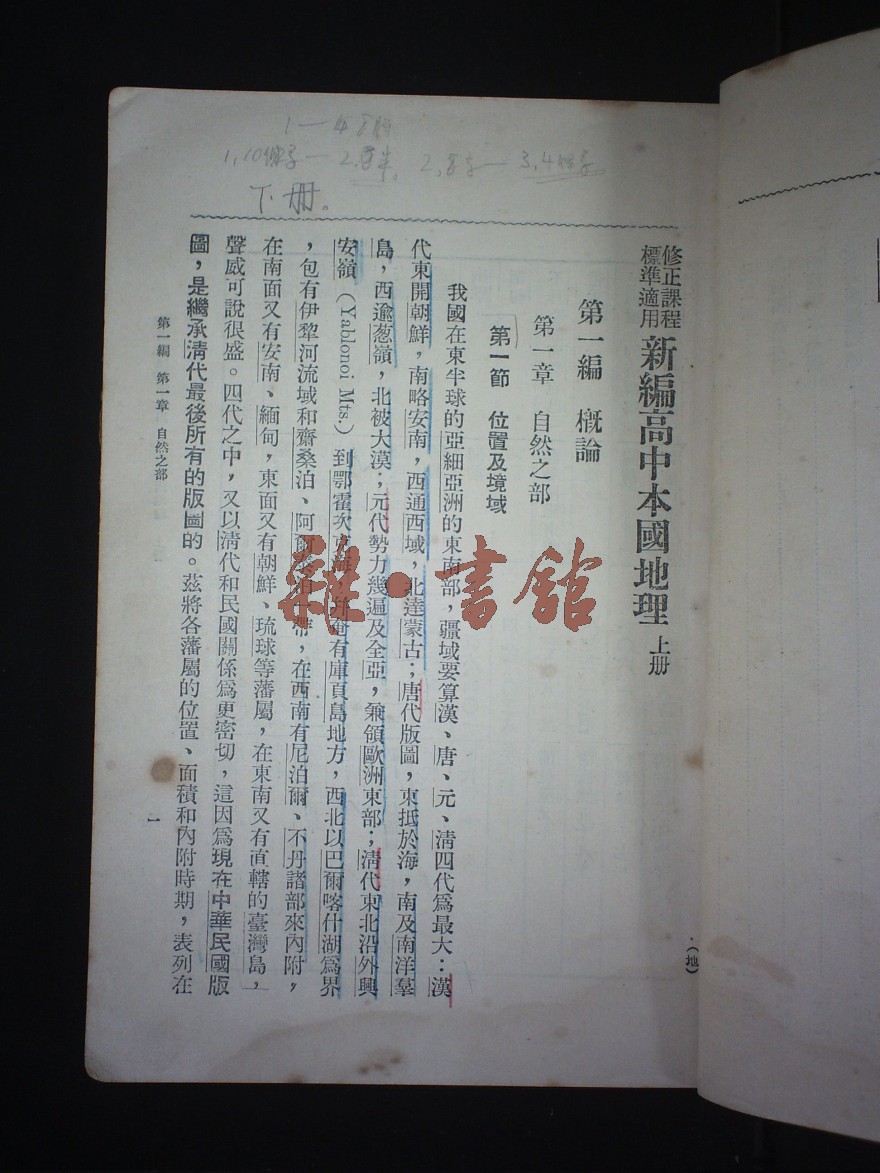 下册。
修正課程
標準適用
新編高中本國地理 上册
(地)
第一編 概論
第一章 自然之部
第一節 位置及境域
我國在東半球的亞細亞洲的東南部，疆域要算漢、唐、元、清四代爲最大：漢
代東開朝鮮，南略安南，西通西域，北達蒙古；唐代版圖，東抵於海，南及南洋羣
島，西逾葱嶺，北被大漠；元代勢力幾遍及全亞，兼領歐洲東部；清代東北沿外興
安嶺（Yablonoi Mts.）到鄂霍次克海，并奄有庫頁島地方，西北以巴爾喀什湖爲界
，包有伊犂河流域和齋桑泊、阿爾泰泊一帶，在西南有尼泊爾、不丹諸部來內附，
在南面又有安南、緬甸，東面又有朝鮮、琉球等藩屬，在東南又有直轄的臺灣島，
聲威可說很盛。四代之中，又以清代和民國關係爲更密切，這因爲現在中華民國版
圖，是繼承清代最後所有的版圖的。茲將各藩屬的位置、面積和內附時期，表列在
第一編 第一章 自然之部
一
雜·書館